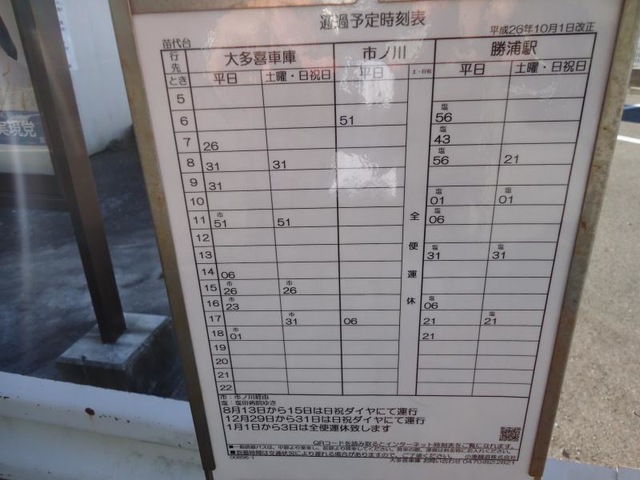 通過予定時刻表
平成26年10月1日改正
苗代台
行先 大多喜車庫 市ノ川 勝浦駅
とき 平日 土曜・日祝日 平日 土・日祝 平日 土曜・日祝日
5
6 51 塩56
7 26 塩43
8 31 31 塩56 21
9 31
10 塩01 塩01
11 市51 51 塩06
12
13 塩31 塩31
14 06
15 市26 市26
16 市23 塩06
17 市31 06 21 塩21
18 市01 21
19
20
21
22
全便運休
市：市ノ川経由
塩：塩田病院ゆき
8月13日から15日は日祝ダイヤにて運行
12月29日から31日は日祝ダイヤにて運行
1月1日から3日は全便運休致します
QRコードを読み取るとインターネット時刻表をご覧になれます。
実現党